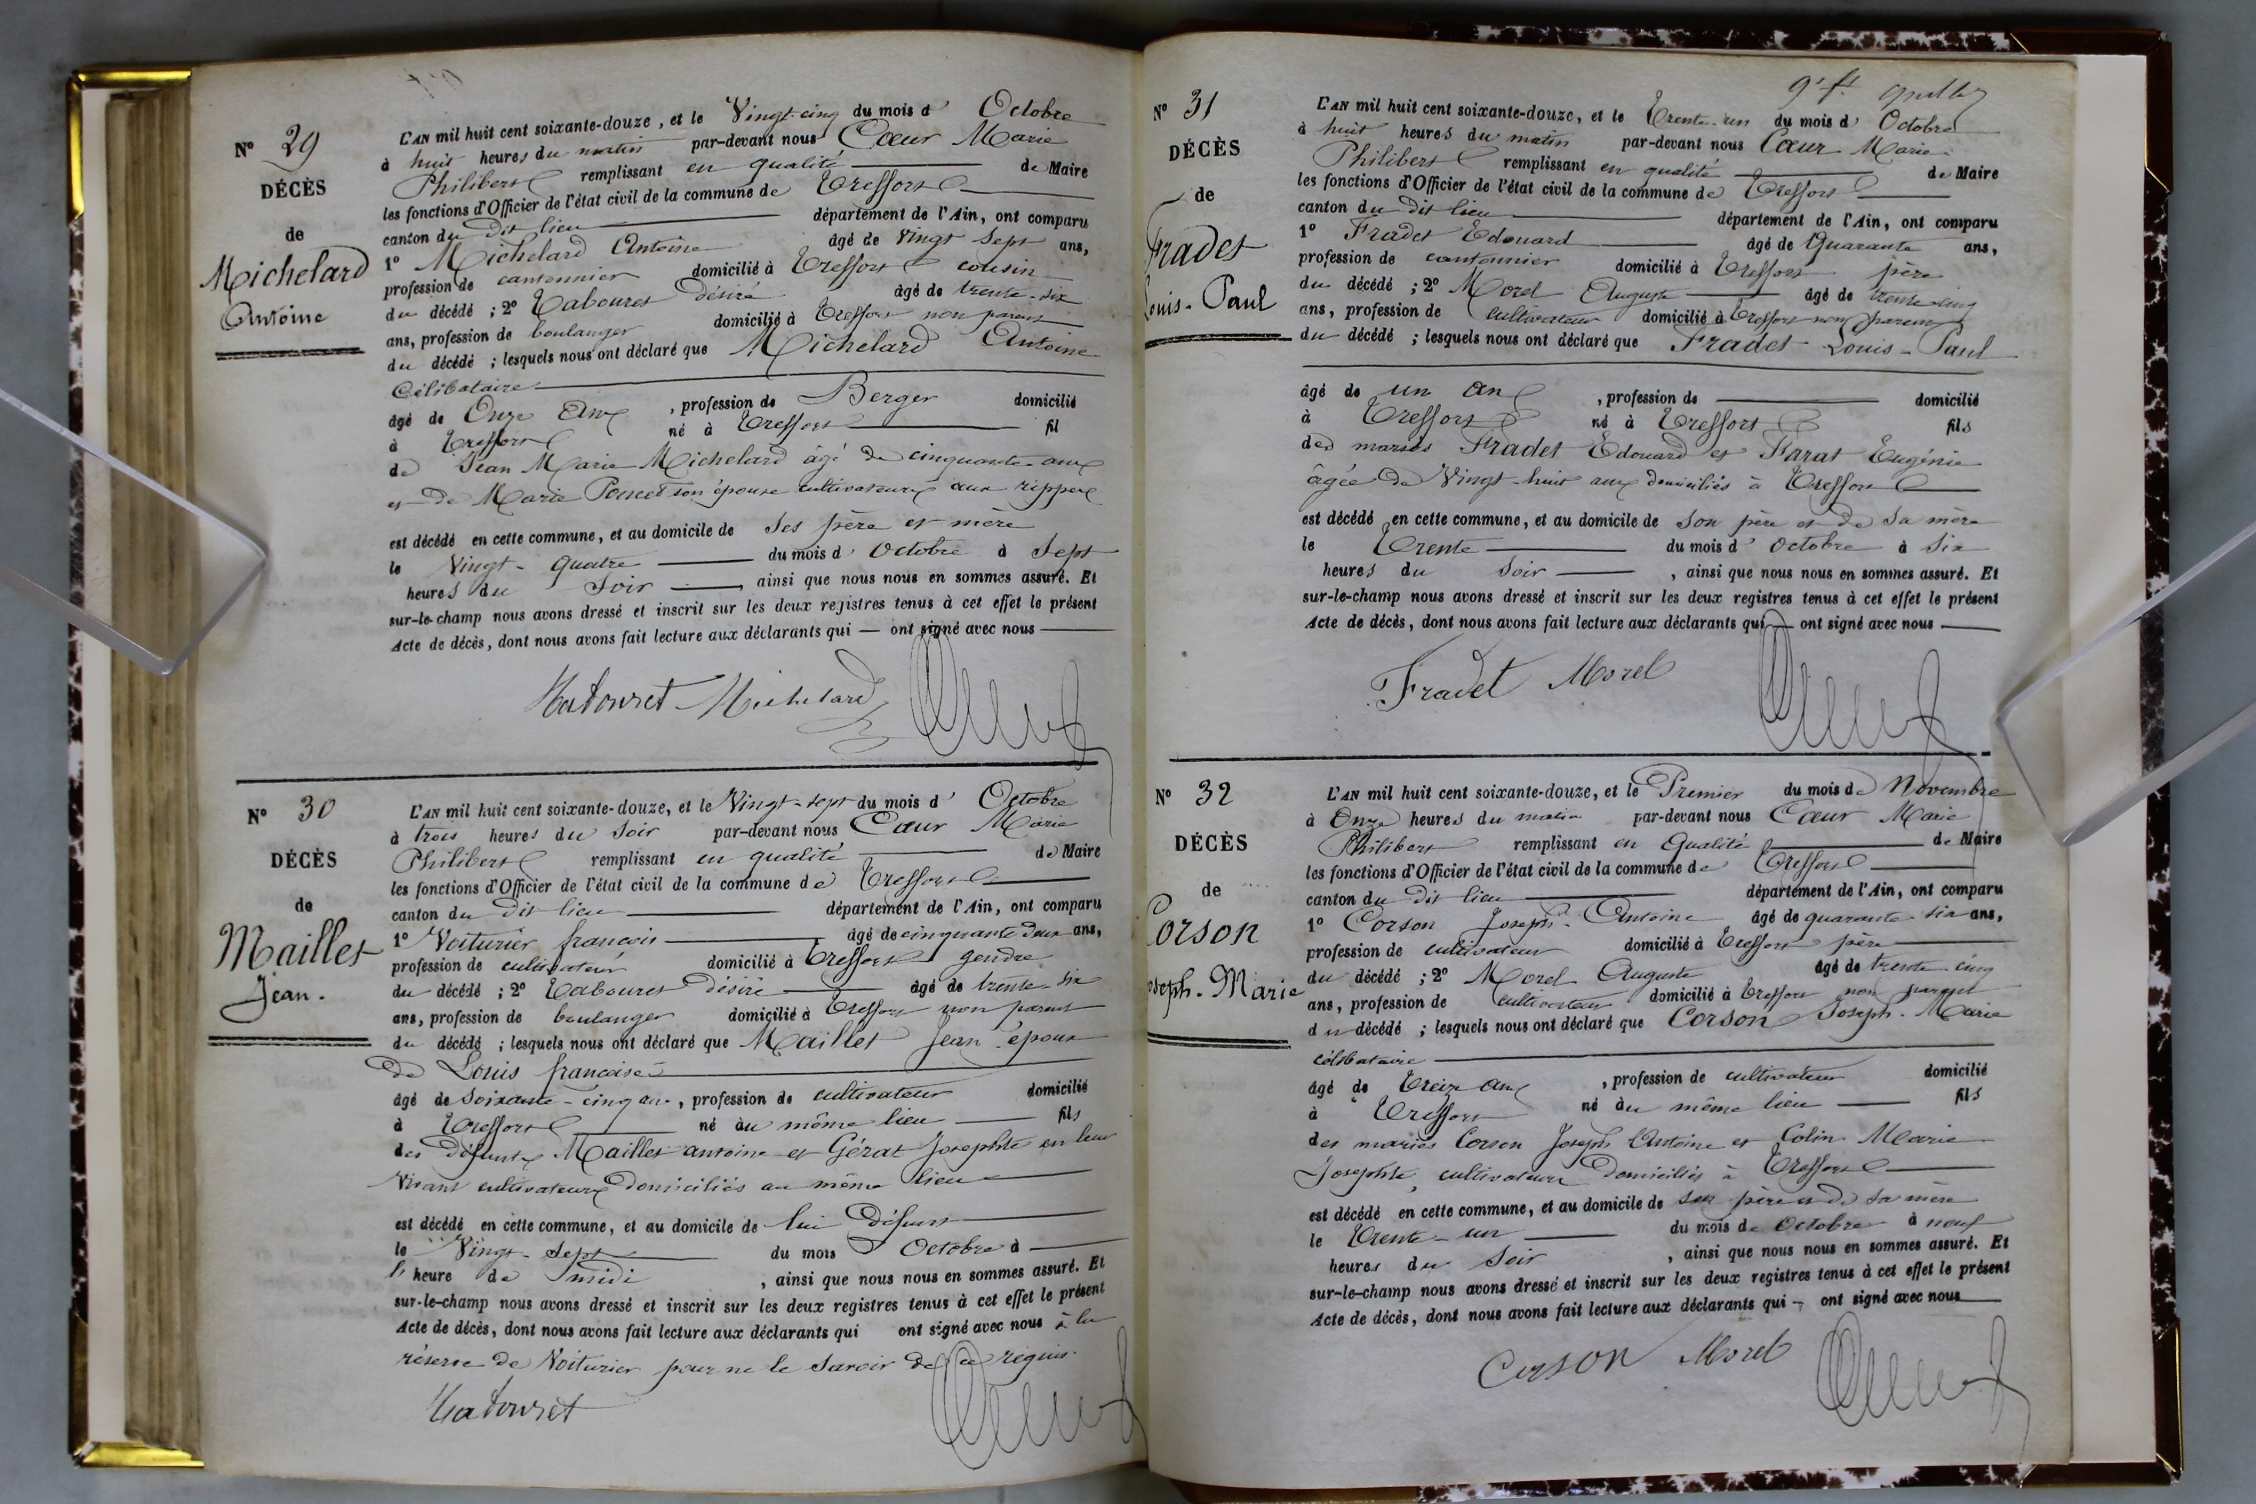 N° 29
DÉCÈS
de
Michelard
Antoine
L'AN mil huit cent soixante-douze, et le Vingt-cinq du mois d' Octobre
à huit heures du matin par-devant nous Cœur Marie
Philibert remplissant en qualité de Maire
les fonctions d'Officier de l'état civil de la commune de Treffort
canton du dit lieu département de l'Ain, ont comparu
1° Michelard Antoine âgé de vingt sept ans,
profession de cantonnier domicilié à Treffort cousin
du décédé ; 2° Tabouret Désiré âgé de trente-six
ans, profession de boulanger domicilié à Treffort non parent
du décédé ; lesquels nous ont déclaré que Michelard Antoine
Célibataire
âgé de Onze Ans, profession de Berger domicilié
à Treffort né à Treffort fil
de Jean Marie Michelard âgé de cinquante ans
et de Marie Poncet son épouse cultivateurs aux rippes
est décédé en cette commune, et au domicile de ses père et mère
le Vingt-quatre du mois d' Octobre à Sept
heures du Soir ainsi que nous nous en sommes assuré. Et
sur-le-champ nous avons dressé et inscrit sur les deux registres tenus à cet effet le présent
Acte de décès, dont nous avons fait lecture aux déclarants qui — ont signé avec nous
Tabouret Michelard
N° 30
DÉCÈS
de
Maillet
Jean.
L'AN mil huit cent soixante-douze, et le Vingt-sept du mois d' Octobre
à trois heures du soir par-devant nous Cœur Marie
Philibert remplissant en qualité de Maire
les fonctions d'Officier de l'état civil de la commune de Treffort
canton du dit lieu département de l'Ain, ont comparu
1° Voiturier françois âgé de cinquante deux ans,
profession de cultivateur domicilié à Treffort gendre
du décédé ; 2° Tabouret désiré âgé de trente-six
ans, profession de boulanger domicilié à Treffort non parent
du décédé ; lesquels nous ont déclaré que Maillet Jean époux
de Louis françoise
âgé de soixante-cinq ans, profession de cultivateur domicilié
à Treffort né au même lieu fils
des défunts Maillet antoine et Gérat Josephte en leur
vivant cultivateurs domiciliés au même lieu
est décédé en cette commune, et au domicile de lui défunt
le Vingt-sept du mois Octobre à
l'heure de midi, ainsi que nous nous en sommes assuré. Et
sur-le-champ nous avons dressé et inscrit sur les deux registres tenus à cet effet le présent
Acte de décès, dont nous avons fait lecture aux déclarants qui ont signé avec nous à la
réserve de Voiturier pour ne le savoir de ce requis.
Tabouret
N° 31
DÉCÈS
de
Fradet
Louis-Paul
L'AN mil huit cent soixante-douze, et le Trente-un du mois d' Octobre
à huit heures du matin par-devant nous Cœur Marie
Philibert remplissant en qualité de Maire
les fonctions d'Officier de l'état civil de la commune de Treffort
canton du dit lieu département de l'Ain, ont comparu
1° Fradet Edouard âgé de Quarante ans,
profession de cantonnier domicilié à Treffort père
du décédé ; 2° Morel Auguste âgé de trente-cinq
ans, profession de cultivateur domicilié à Treffort non parent
du décédé ; lesquels nous ont déclaré que Fradet Louis-Paul
âgé de un an, profession de domicilié
à Treffort né à Treffort fils
des mariés Fradet Edouard et Farat Eugénie
âgée de Vingt-huit ans domiciliés à Treffort
est décédé en cette commune, et au domicile de son père et de sa mère
le Trente du mois d' octobre à six
heures du soir, ainsi que nous nous en sommes assuré. Et
sur-le-champ nous avons dressé et inscrit sur les deux registres tenus à cet effet le présent
Acte de décès, dont nous avons fait lecture aux déclarants qui — ont signé avec nous
Fradet Morel
N° 32
DÉCÈS
de
Corson
Joseph-Marie
L'AN mil huit cent soixante-douze, et le Premier du mois de Novembre
à Onze heures du matin par-devant nous Cœur Marie
Philibert remplissant en Qualité de Maire
les fonctions d'Officier de l'état civil de la commune de Treffort
canton du dit lieu département de l'Ain, ont comparu
1° Corson Joseph-Antoine âgé de quarante-six ans,
profession de cultivateur domicilié à Treffort père
du décédé ; 2° Morel Auguste âgé de trente-cinq
ans, profession de cultivateur domicilié à Treffort non parent
du décédé ; lesquels nous ont déclaré que Corson Joseph-Marie
célibataire
âgé de Treize ans, profession de cultivateur domicilié
à Treffort né au même lieu fils
des mariés Corson Joseph Antoine et Colin Marie
Josephte, cultivateurs domiciliés à Treffort
est décédé en cette commune, et au domicile de son père et de sa mère
le Trente-un du mois de Octobre à neuf
heures du soir, ainsi que nous nous en sommes assuré. Et
sur-le-champ nous avons dressé et inscrit sur les deux registres tenus à cet effet le présent
Acte de décès, dont nous avons fait lecture aux déclarants qui — ont signé avec nous
Corson Morel